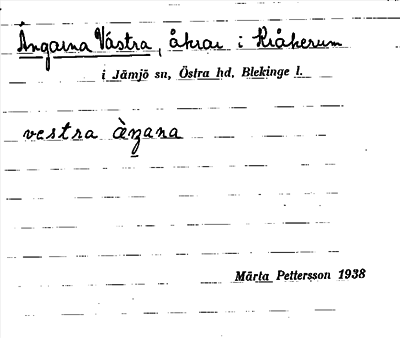 Ängarna Västra, åkrar i Kråkerum
i Jämjö sn, Östra hd, Blekinge l.
vestra àŋana
Märta Pettersson 1938